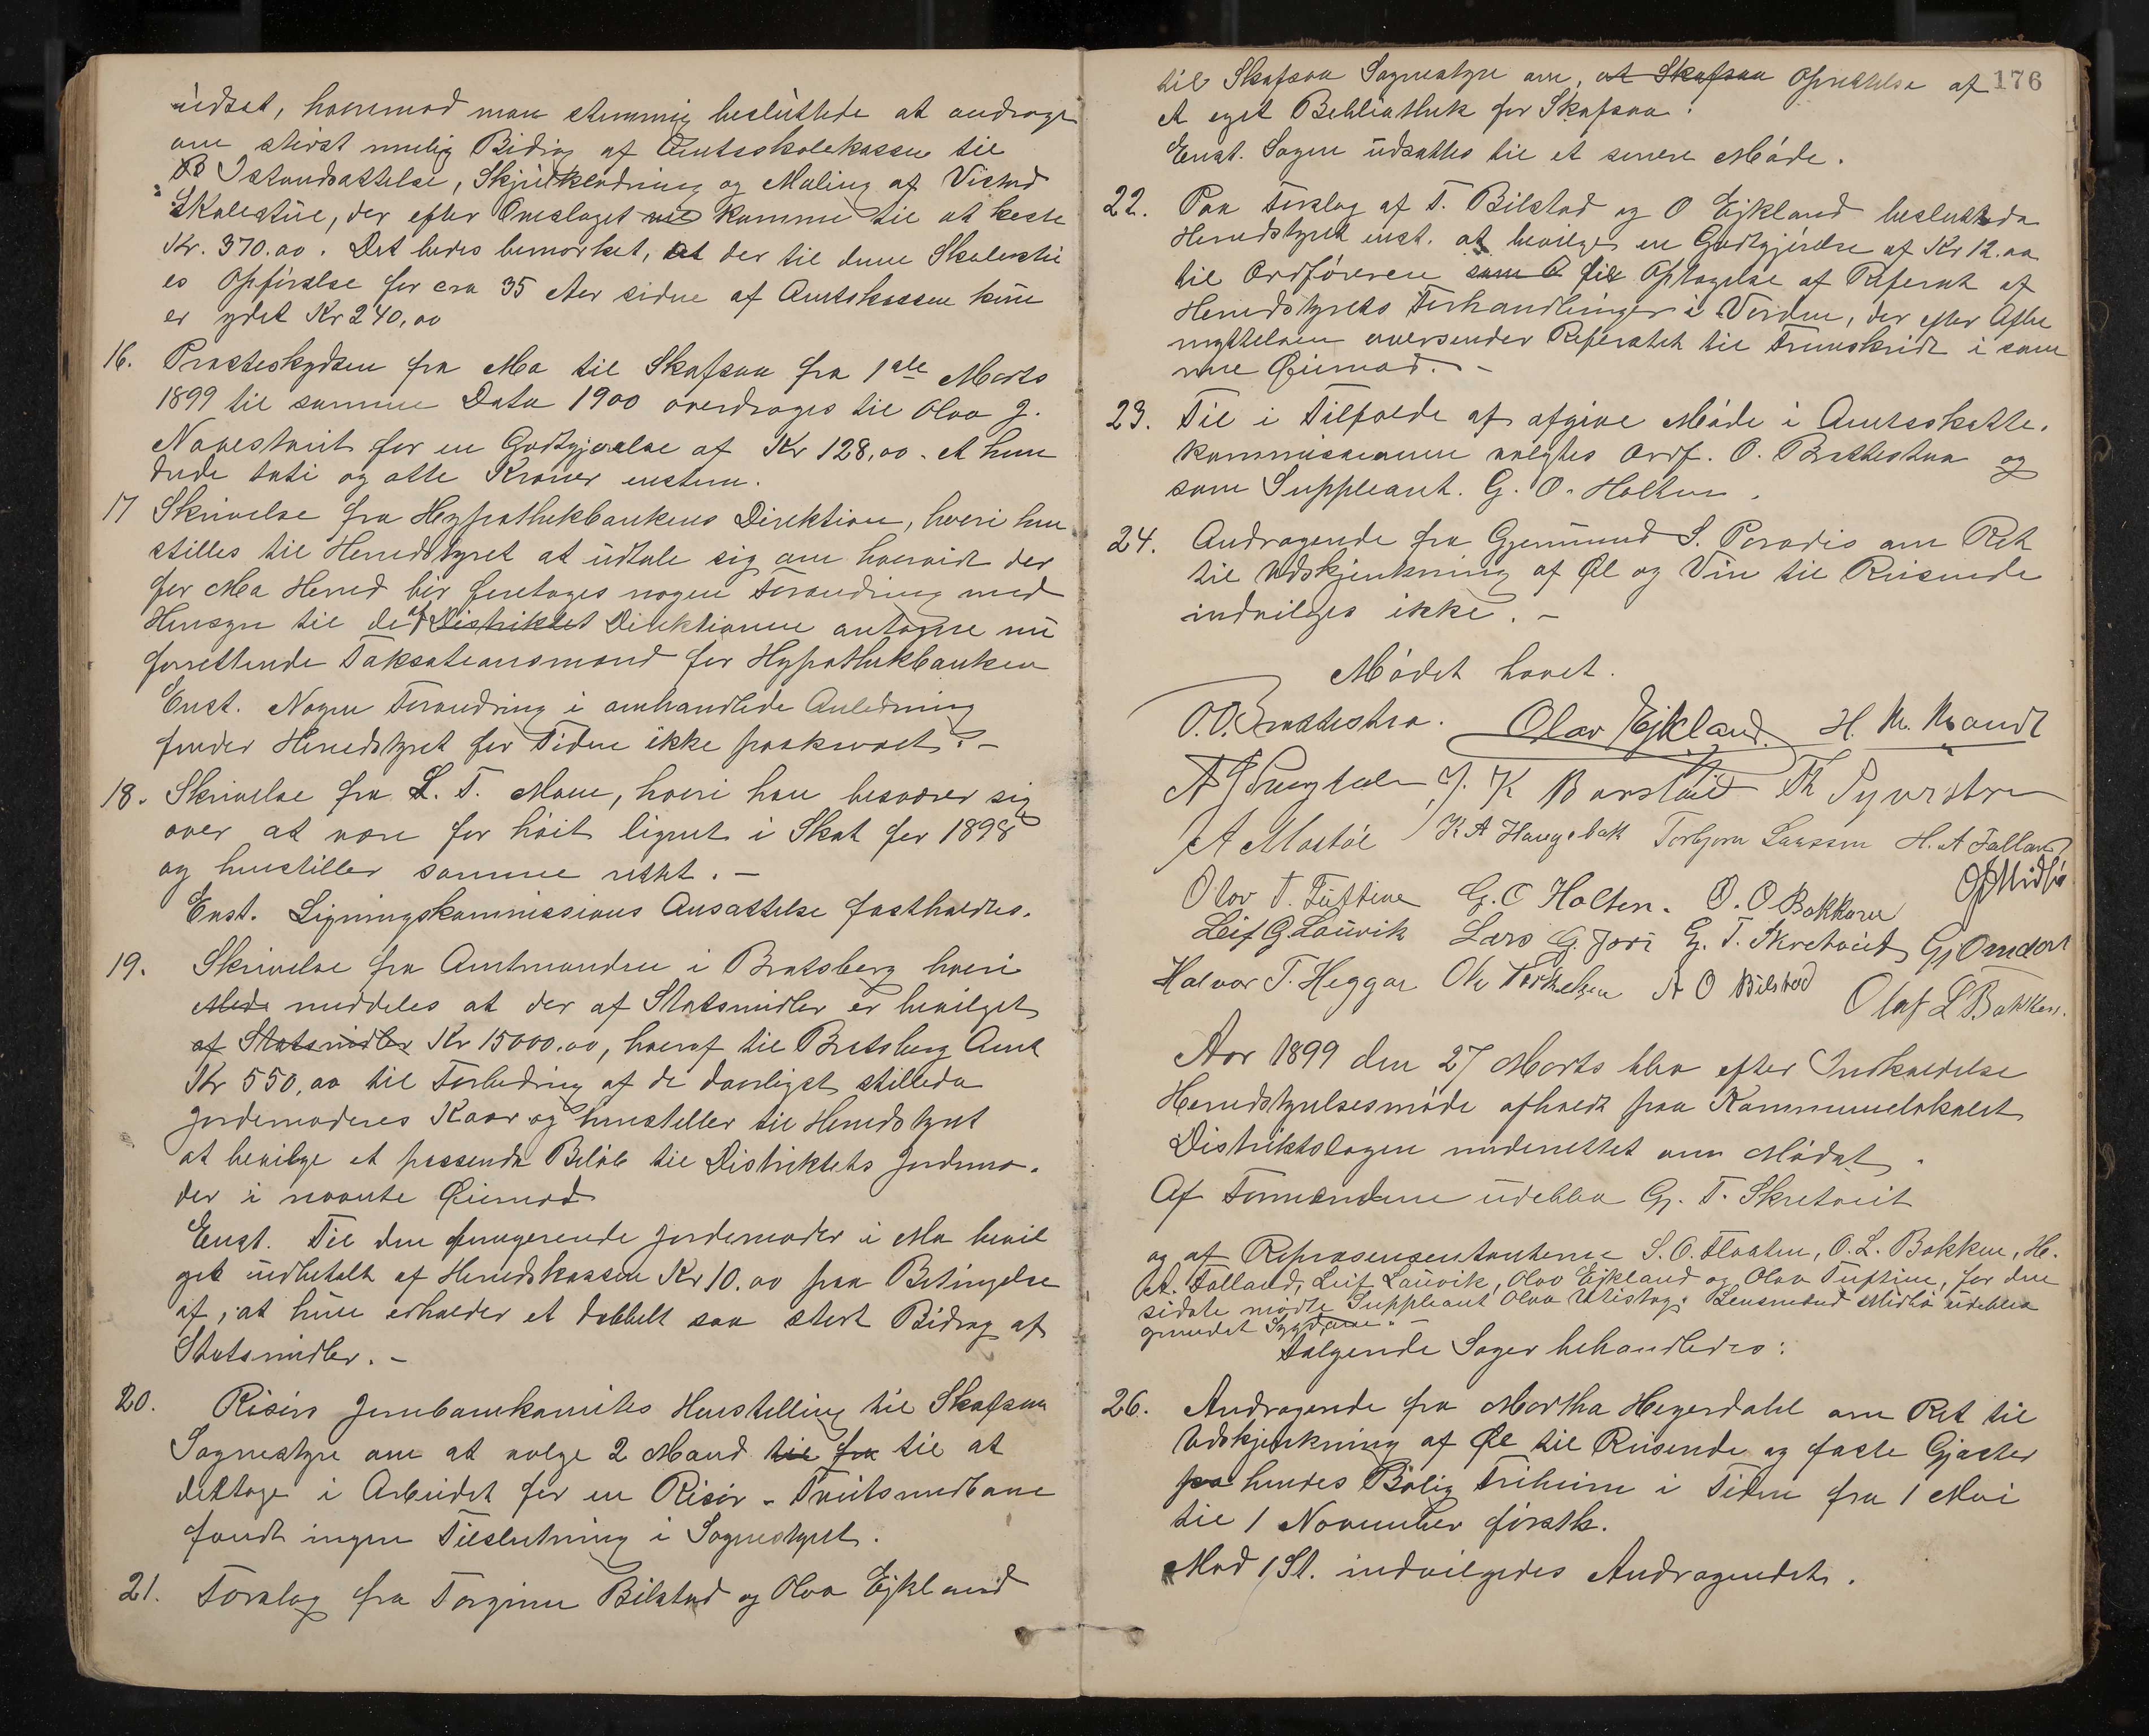 udsat, hvormod man stemmig besluttede at andrage
om størst mulig Bidrag af Amtsskolekassen til
Istandsættelse, Skjulklædning og Maling af Vistad
Skolestue, der efter Overslaget vil komme til at koste
Kr. 370.00. Det bedes bemærket, at der til denne Skolestu
es Opførelse for cra 35 Aar siden af Amtskassen kun
er ydet Kr 240,00
16. Præsteskydsen fra Mo til Skafsaa fra 1ste Marts
1899 til samme Dato 1900 overdroges til Olav J.
Navestveit for en Godtgjørelse af Kr 128,00. Et hun
drede toti og otte Kroner enstem.
17 Skrivelse fra Hypothekbankens Direktion, hvori hen
stilles til Herredstyret at udtale sig om hvorvidt der
for Mo Herred bør foretages nogen Forandring med
Hensyn til de af Distriktet Direktionen antagne nu
forrettende Taksationsmænd for Hypothekbanken
Enst. Nogen Forandring i omhandlede Anledning
finder Herredstyret for Tiden ikke paakrævet. –
18. Skrivelse fra L. T. Moen, hvori han besværer sig
over at være for høit lignet i Skat for 1898
og henstiller samme rettet. –
Enst. Ligningskommissions Ansættelse fastholdtes.
19. Skrivelse fra Amtmanden i Bratsberg hvori
Mede meddeles at der af Statsmidler er bevilget
af Statsmidler Kr 15000.00, hvoraf til Bratsberg Amt
Kr 550,00 til Forbedring af de daarligst stillede
Jordemødres Kaar og henstiller til Herredstyret
at bevilge et passende Beløb til Distriktets Jordemo-
der i nævnte Øiemed
Enst. Til den fungerende Jordemoder i Mo bevil
get udbetalt af Herredskassen Kr 10.00 paa Betingelse
af, at hun erholder et dobbelt saa stort Bidrag af
Statsmidler. –
20. Risørs Jernbanekomites Henstilling til Skafsaa
Sognestyre om at vælge 2 Mand til fra til at
deltage i Arbeidet for en Risør - Treitsundbane
fandt ingen Tilslutning i Sognestyret.
21. Forslag fra Torginn Bilstad og Olav Ejkland
176
til Skafsaa Sognestyre om, at Skafsaa Oprettelse af
et eget Bibliothek for Skafsaa.
Enst. Sagen udsattes til et senere Møde.
22. Paa Forslag af T. Bilstad og O Ejkland besluttede
Herredstyret enst. at bevilge en Godtgjørelse af Kr 12.00
til Ordføreren som O for Optagelse af Referat af
Herredstyrets Forhandlinger i Verden, der efter Afbe
nyttelsen oversender Referatet til Fremskridt i sam
me Øiemed. –
23. Til i Tilfælde af afgive Møde i Amtsskatte-
kommissionen valgtes Ordf. O. Brattestaa og
som Suppleant. G. O. Holten.
24. Andragende fra Gjermund S. Paradis om Ret
til Udskjænkning af Øl og Vin til Reisende
indvilges ikke. –
Mødet hævet.
O. O. Brattestaa. Olav Ejkland. H. M. Mandt
J. K Borstad
A Mostøl K A Haugebak Torbjørn Larssen H. A Falland
Olav T. Tuftine G. O Holten. O. O Bakken O Midbø
Leif G. Lauvik Lars G. Jore G. T. Skretveit
Halvor T. Heggar Ole Torkelsen A O Bilstad Olaf L Bakken.
Aar 1899 den 27 Marts blev efter Indkaldelse
Herredstyrelsesmøde afholdt paa Kommunelokalet
Distriktslægen underrettet om Mødet.
Af Formændene udeblev G. T. Skretveit
og af Repræsensentanterne S. O. Flaaten, O. L. Bakken, H.
A. Falland, Leif Lauvik, Olav Ejkland og Olav Tuftine, for den
sidste mødte Suppleant Olav Utistog. Lensmand Midbø udeblev
grundet Sygdom. –
Følgende Sager behandledes:
26. Andragende fra Martha Hegerdahl om Ret til
Udskjænkning af Øl til Reisende og faste Gjæster
paa hendes Bolig Triheim i Tiden fra 1 Mai
til 1 November førstk.
Mod 1 St. indvilgedes Andragendet.